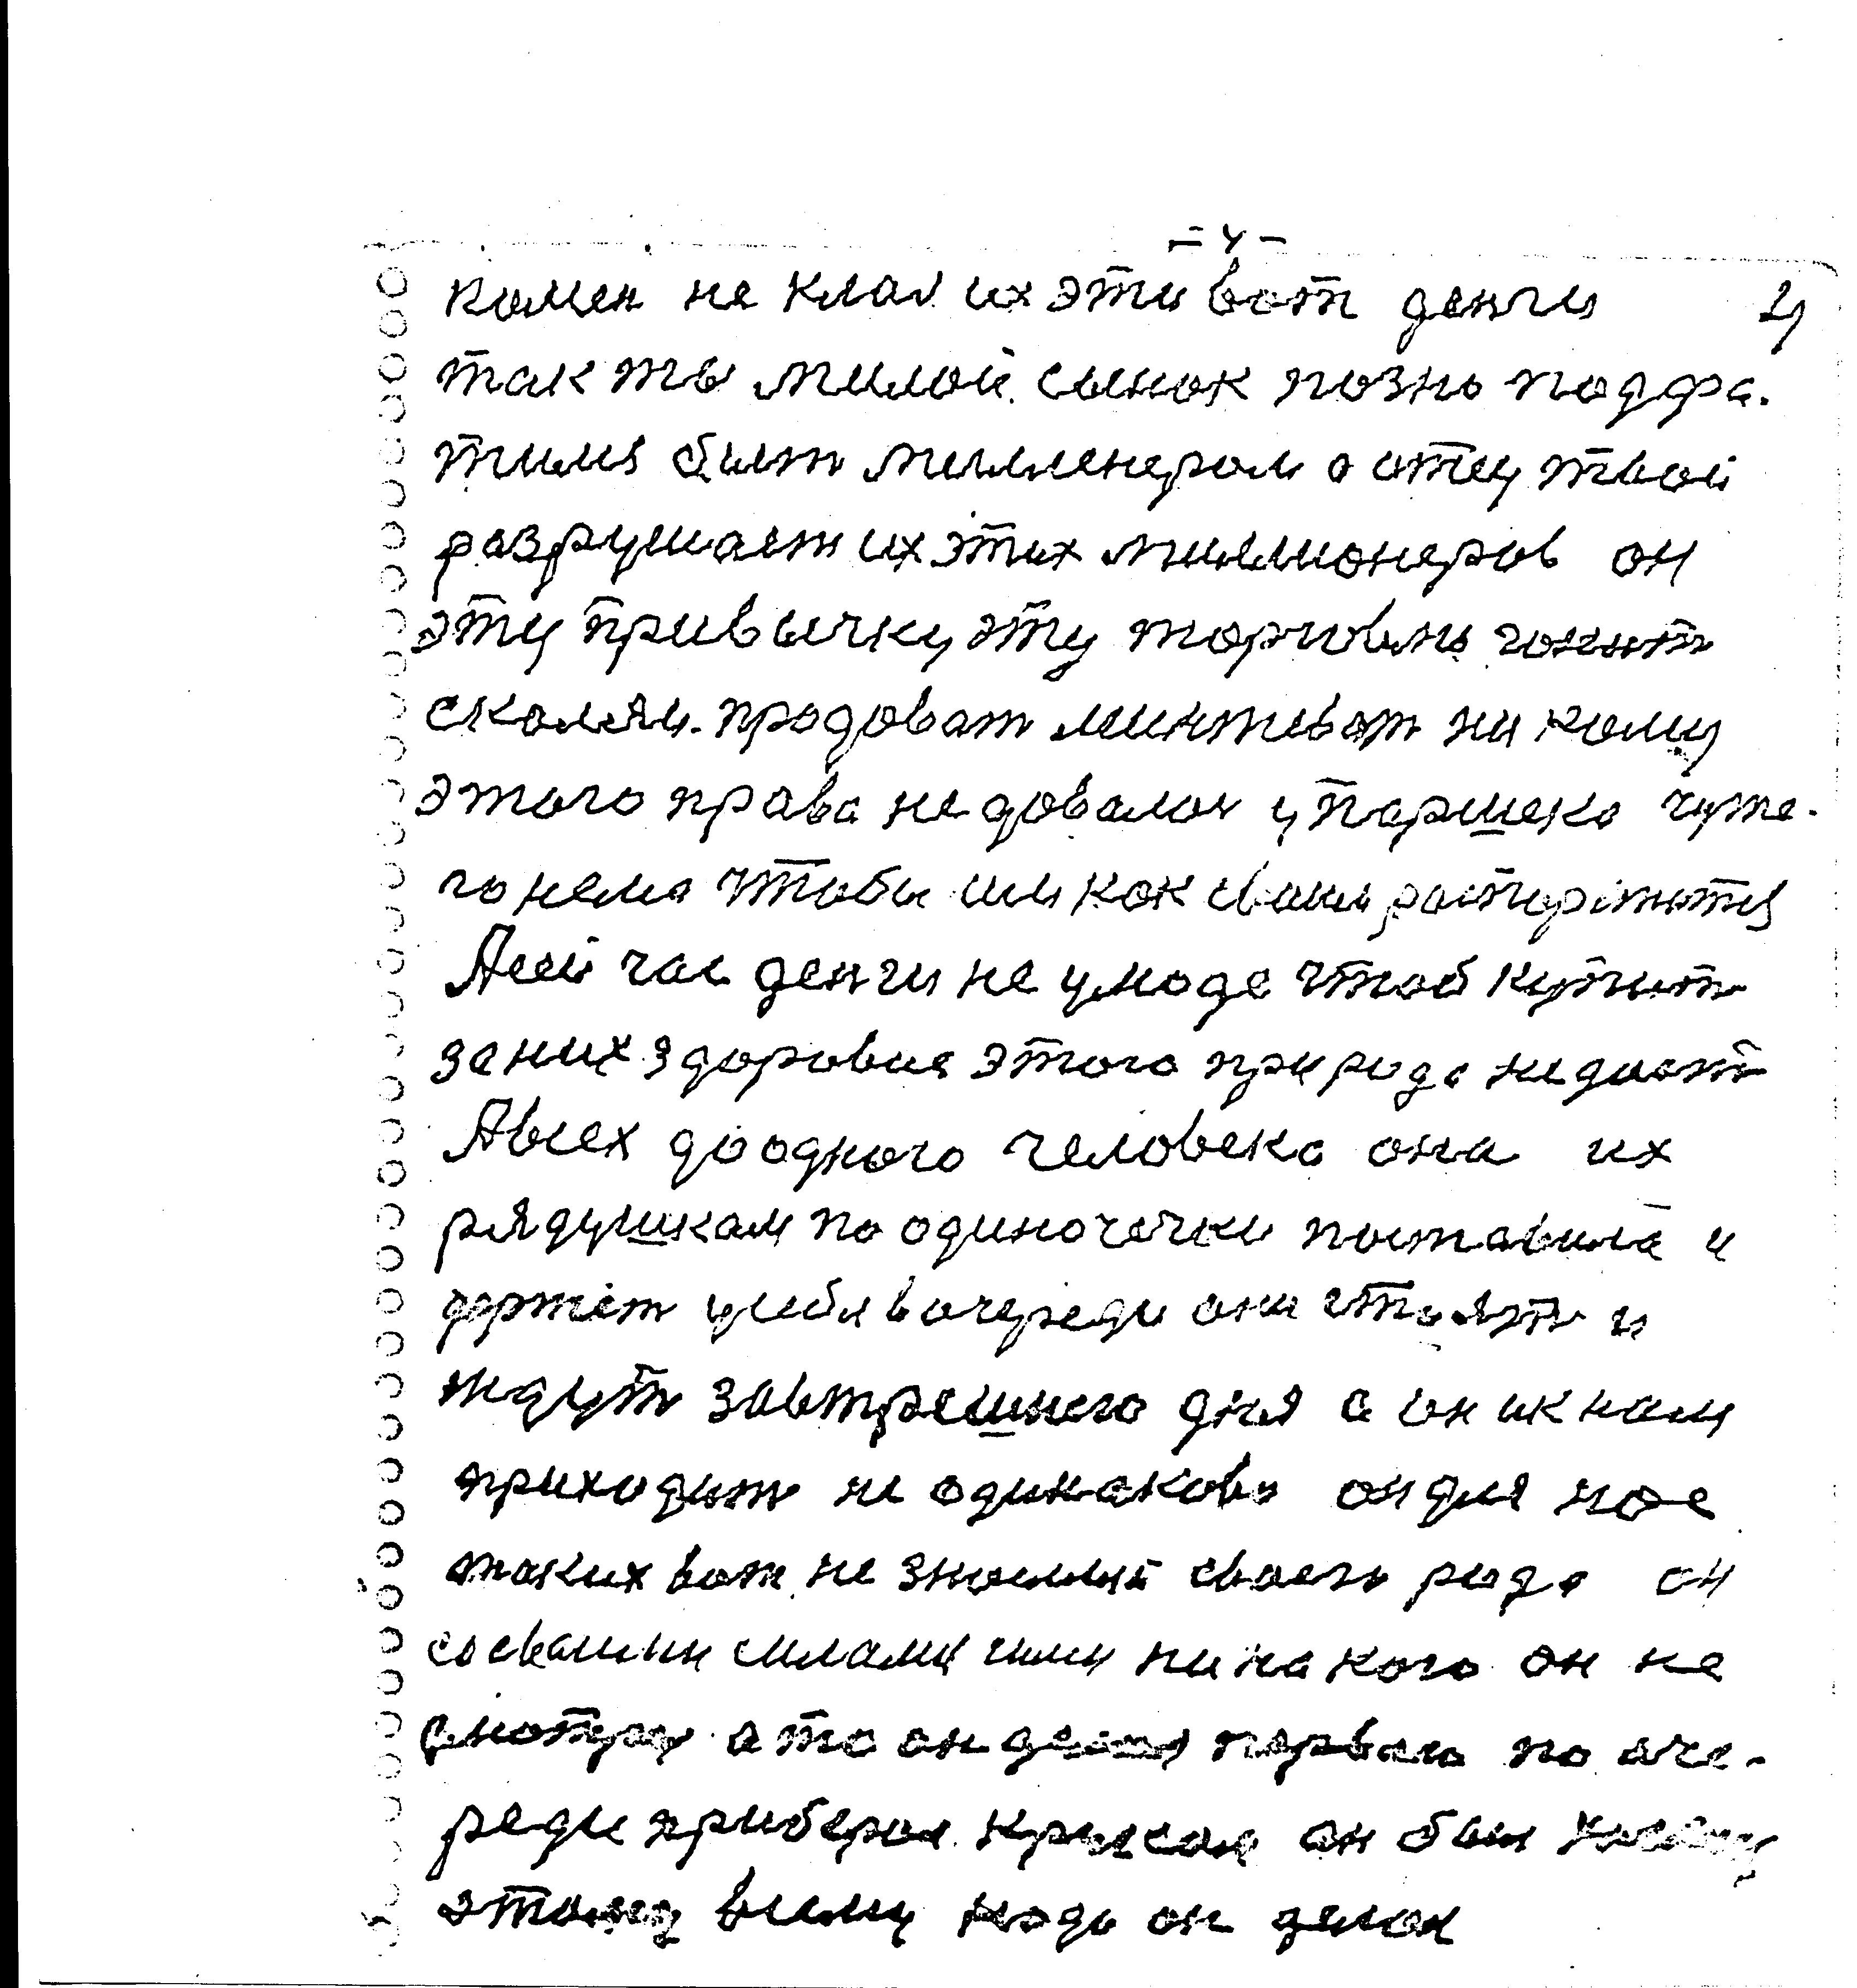 -4-
камен не клал их эти вот денги 4
так ты милой сынок позно подфа-
тился быт милленером а отец твой
разрушает их этих миллионеров он
эту привычку эту торговлю гонит
продоват никому
этого права не довалос у Паршека чуте-
го нема чтобы им как своим распоритится
А сей час денги не у моде чтоб купит
за них здоровие этого природа не даст
А всех до одного человека она их
рядушкам по одиночечки поставила и
держит у себя в очереди они стоят и
ждут завтрешнего дня а он ик нам
приходит не одинаково он для нас
таких вот не знающий своего рода он
со своими силами ни на кого он не
а то он перваю по оче-
реди прибирал крысам он был
этому всему надо он делал